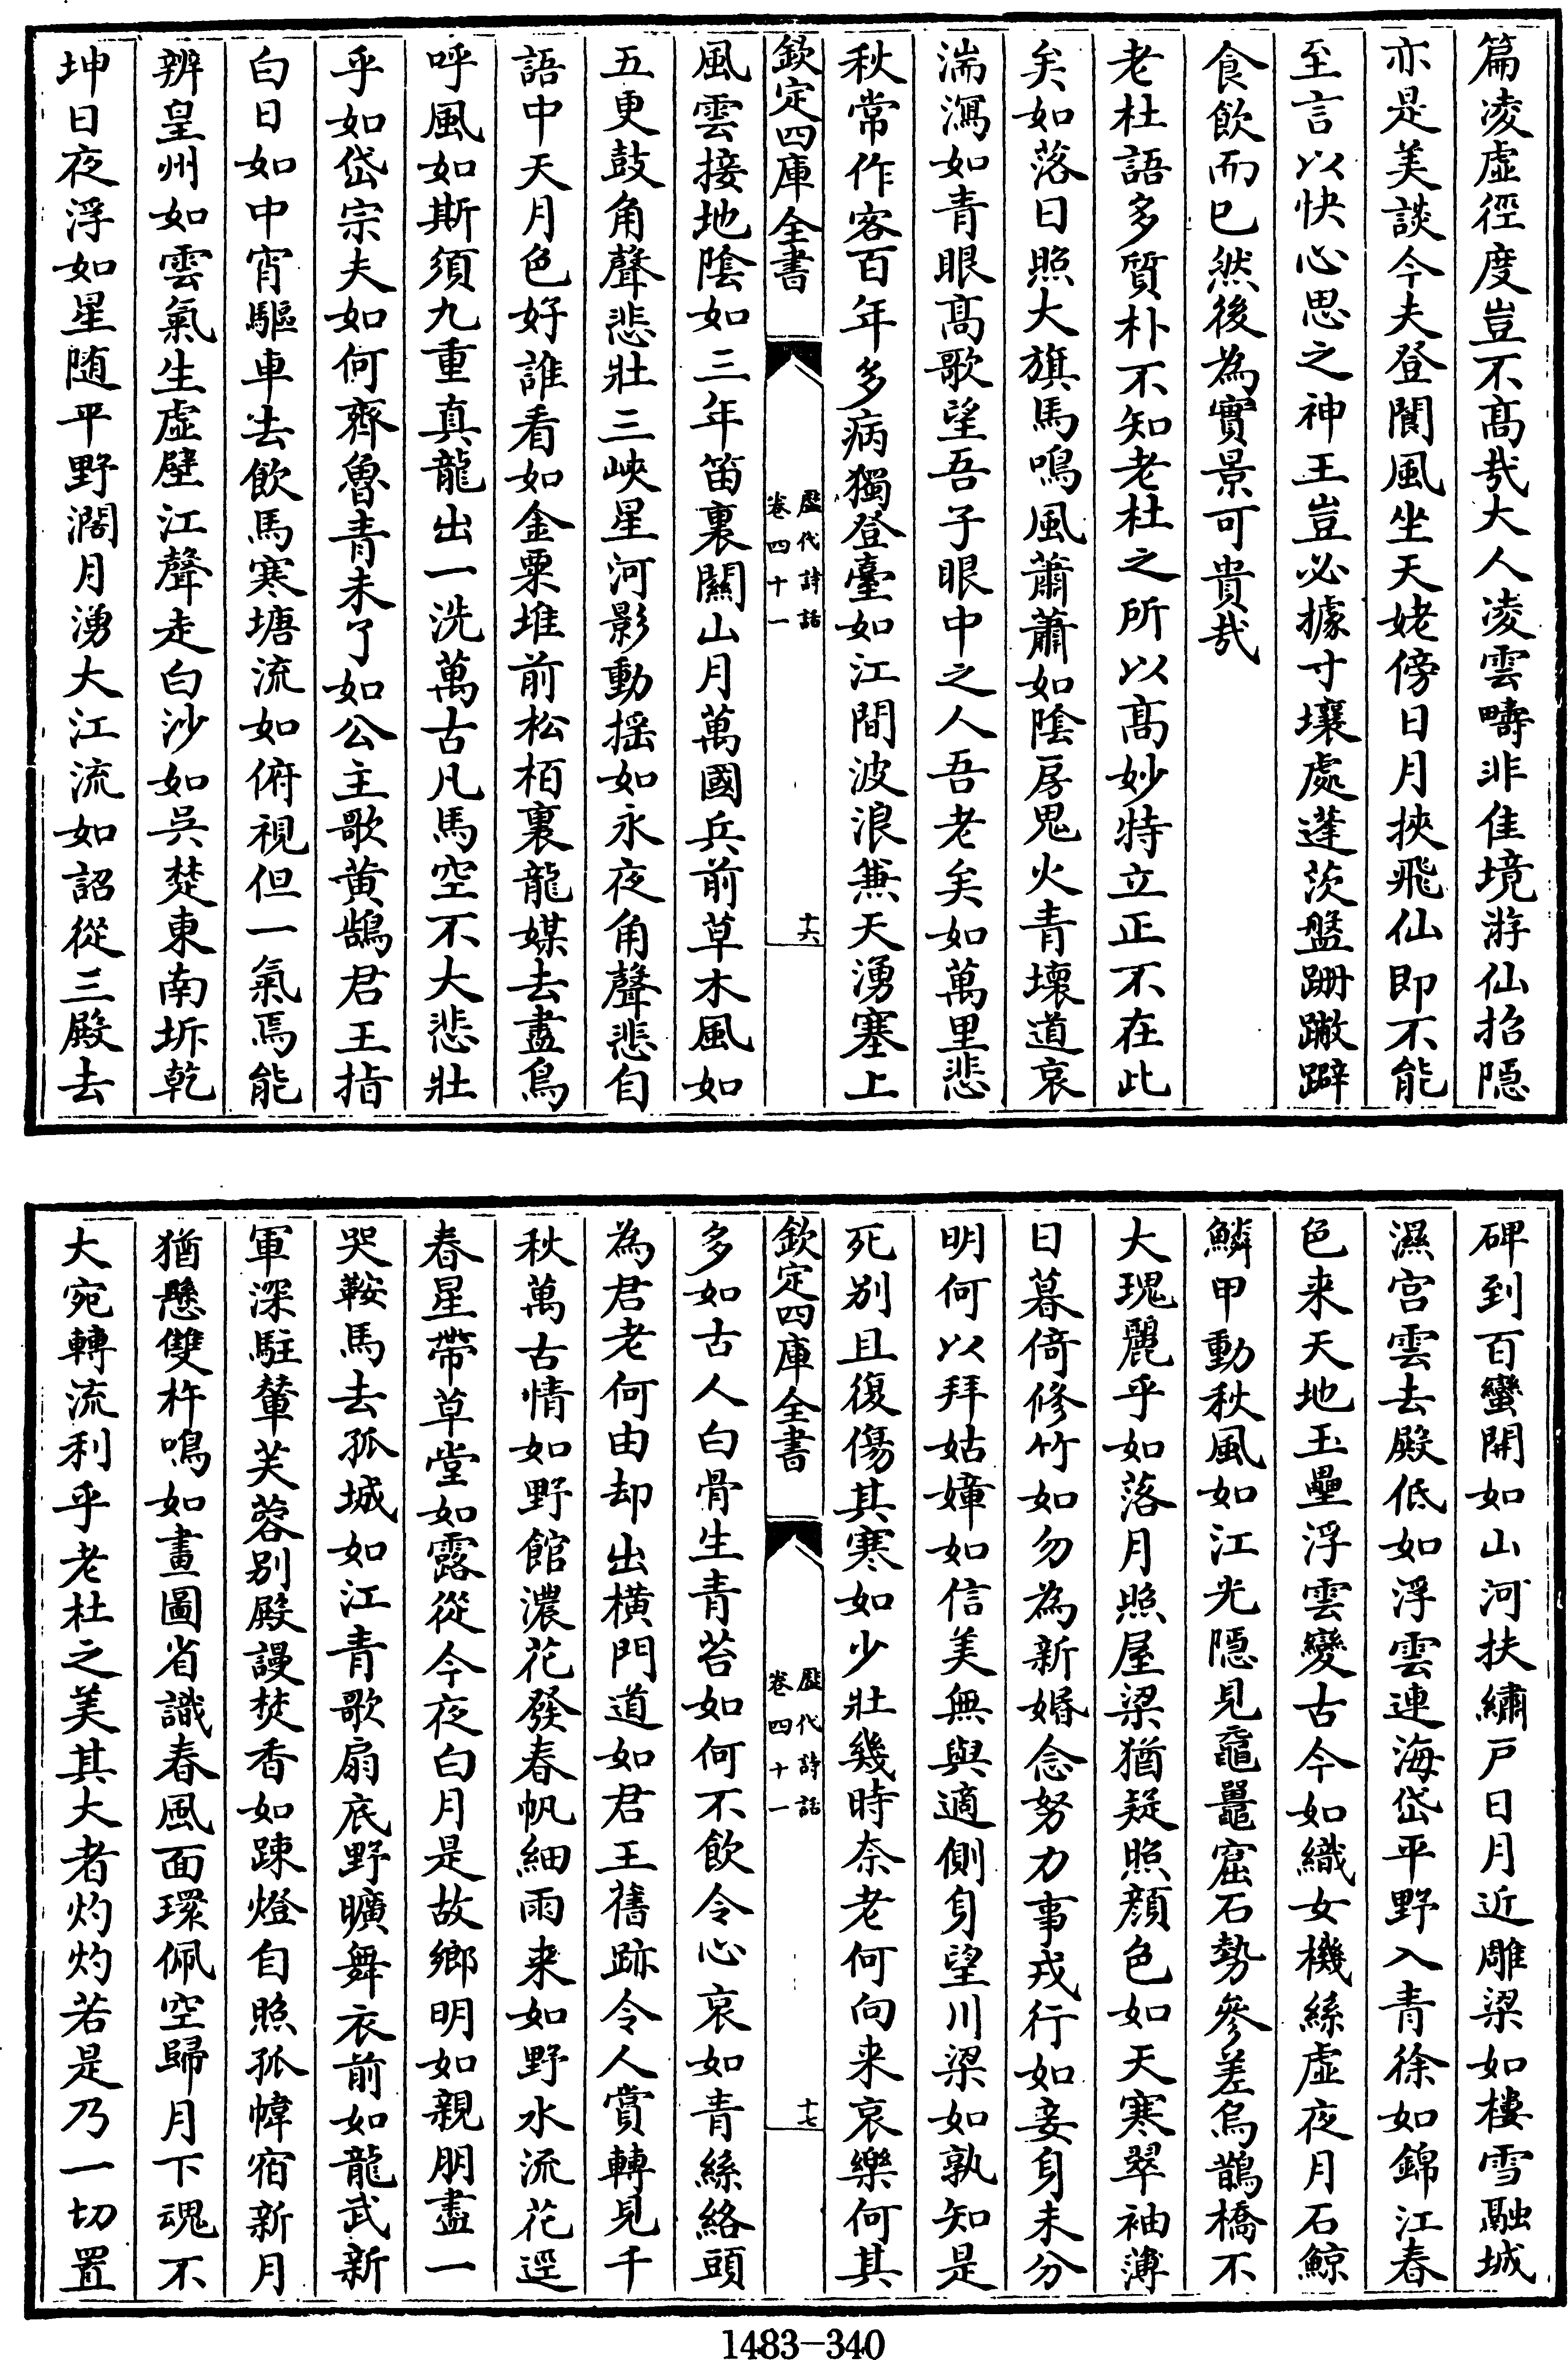 篇凌虚徑度豈不髙㢤大人凌雲疇非佳境游仙招隠
亦是美談今夫登閬風坐天姥傍日月挾飛仙即不能
至言以快心思之神王豈必據寸壤處蓬茨盤跚蹩躃
食飲而已然後為實景可貴㢤
老杜語多質朴不知老杜之所以髙妙特立正不在此
矣如落日照大旗馬鳴風蕭蕭如隂房鬼火青壞道哀
湍瀉如青眼髙歌望吾子眼中之人吾老矣如萬里悲
秋常作客百年多病獨登臺如江間波浪兼天湧塞上
欽定四庫全書
歴代詩話
卷四十一
十六
風雲接地隂如三年笛裏關山月萬國兵前草木風如
五更鼓角聲悲壯三峽星河影動揺如永夜角聲悲自
語中天月色好誰看如金粟堆前松栢裏龍媒去盡鳥
呼風如斯須九重真龍出一洗萬古凡馬空不大悲壯
乎如岱宗夫如何齊魯青未了如公主歌黄鵠君王指
白日如中宵驅車去飲馬寒塘流如俯視但一氣焉能
辨皇州如雲氣生虚壁江聲走白沙如吳楚東南坼乾
坤日夜浮如星随平野濶月湧大江流如詔從三殿去
碑到百蠻開如山河扶繡戸日月近雕梁如樓雪融城
濕宫雲去殿低如浮雲連海岱平野入青徐如錦江春
色来天地玉壘浮雲變古今如織女機絲虚夜月石鯨
鱗甲動秋風如江光隠見黿鼉窟石勢參差烏鵲橋不
大瑰麗乎如落月照屋梁猶疑照顔色如天寒翠袖薄
日暮倚修竹如勿為新婚念努力事戎行如妾身未分
明何以拜姑嫜如信美無與適側身望川梁如孰知是
死别且復傷其寒如少壯幾時奈老何向来哀樂何其
欽定四庫全書
歴代詩話
卷四十一
十七
多如古人白骨生青苔如何不飲令心哀如青絲絡頭
為君老何由却出横門道如君王舊跡令人賞轉見千
秋萬古情如野館濃花發春帆細雨来如野水流花逕
春星帶草堂如露從今夜白月是故鄉明如親朋盡一
哭鞍馬去孤城如江青歌扇底野曠舞衣前如龍武新
軍深駐輦芙蓉别殿謾焚香如踈燈自照孤幃宿新月
猶懸雙杵鳴如畫圖省識春風面環佩空歸月下魂不
大宛轉流利乎老杜之美其大者灼灼若是乃一切置
1483-340